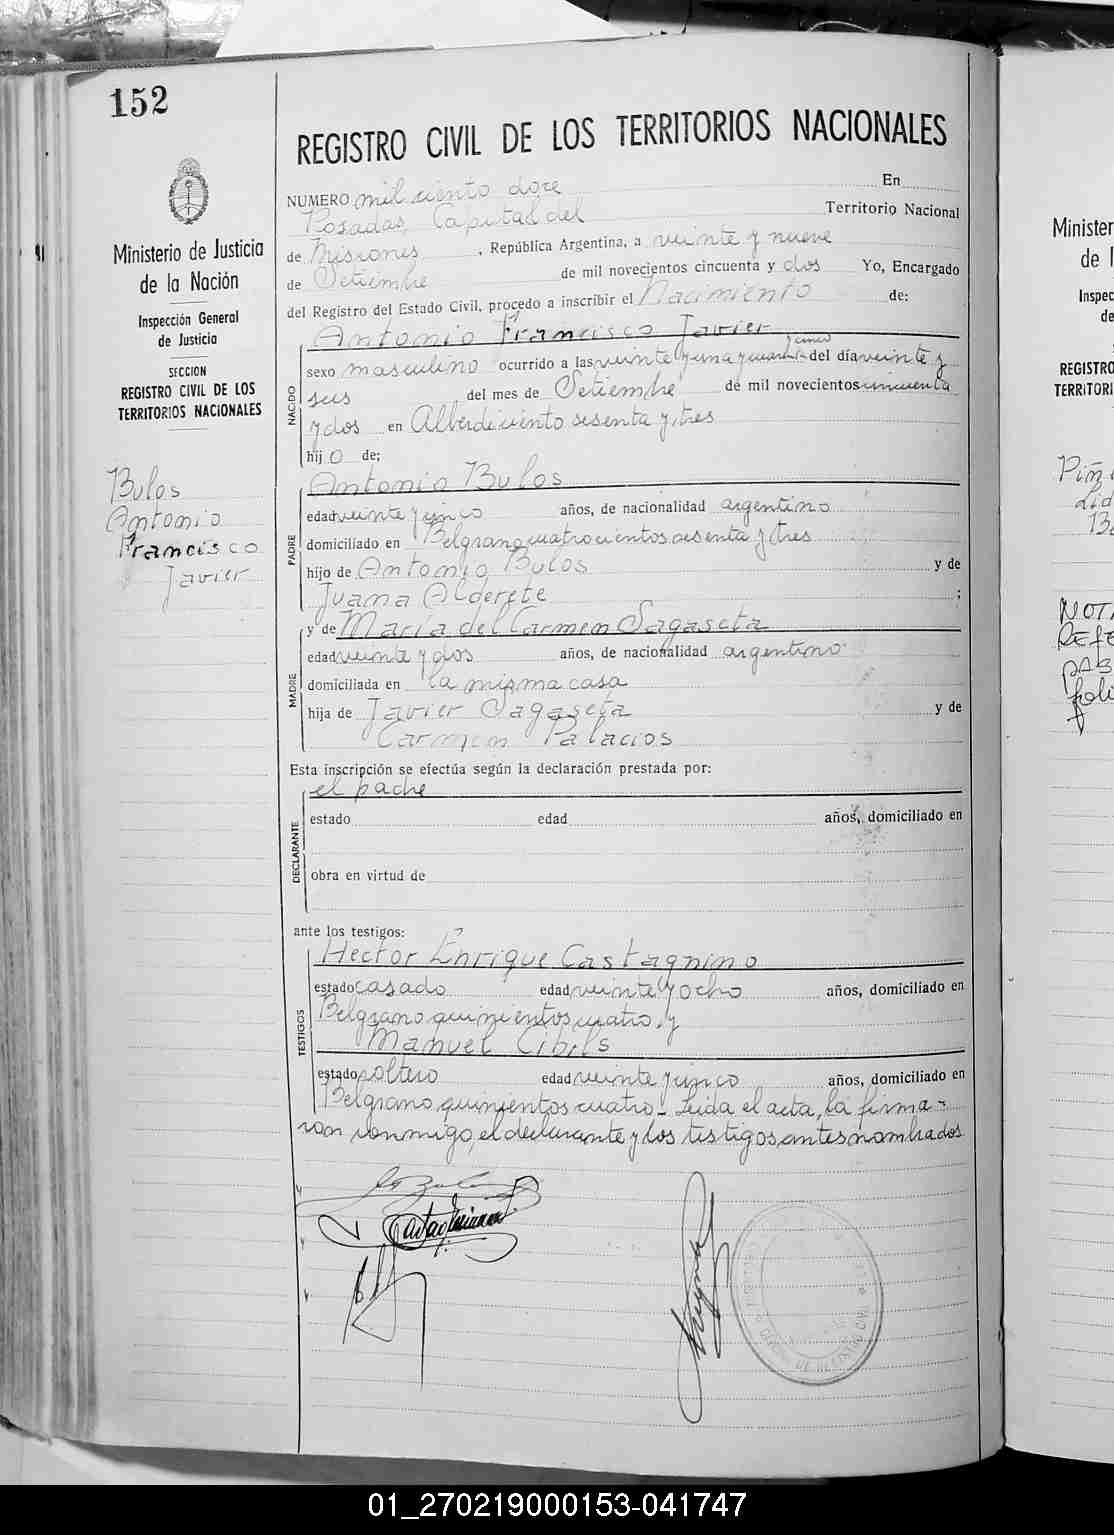 152
REGISTRO CIVIL DE LOS TERRITORIOS NACIONALES
Ministerio de Justicia
de la Nación
Inspección General
de Justicia
SECCION
REGISTRO CIVIL DE LOS
TERRITORIOS NACIONALES
Bulos
Antonio
Francisco
Javier
NUMERO mil ciento doce En
Posadas, Capital del Territorio Nacional
de Misiones, República Argentina, a veinte y nueve
de Setiembre de mil novecientos cincuenta y dos Yo, Encargado
del Registro del Estado Civil, procedo a inscribir el Nacimiento de:
Antonio Francisco Javier
NACIDO
cinco
sexo masculino ocurrido a las veinte y una y cuarenta y del día veinte y
seis del mes de Setiembre de mil novecientos cincuenta
y dos en Alberdi ciento sesenta y tres
hijo de;
PADRE
Antonio Bulos
edad veinte y cinco años, de nacionalidad argentino
domiciliado en Belgrano cuatrocientos sesenta y tres
hijo de Antonio Bulos y de
Juana Alderete ;
MADRE
y de María del Carmen Sagaseta
edad veinte y dos años, de nacionalidad argentino
domiciliada en la misma casa
hija de Javier Sagaseta y de
Carmen Palacios
Esta inscripción se efectúa según la declaración prestada por:
DECLARANTE
el padre
estado edad años, domiciliado en
obra en virtud de
ante los testigos:
TESTIGOS
Hector Enrique Castagnino
estado casado edad veinte y ocho años, domiciliado en
Belgrano quinientos cuatro, y
Manuel Cibils
estado soltero edad veinte y cinco años, domiciliado en
Belgrano quinientos cuatro - Leida el acta, la firma-
ron conmigo, el declarante y los testigos antes nombrados
Minister
de l
Inspec
de
REGISTRO
TERRITORI
NOTA
REFE
01_270219000153-041747